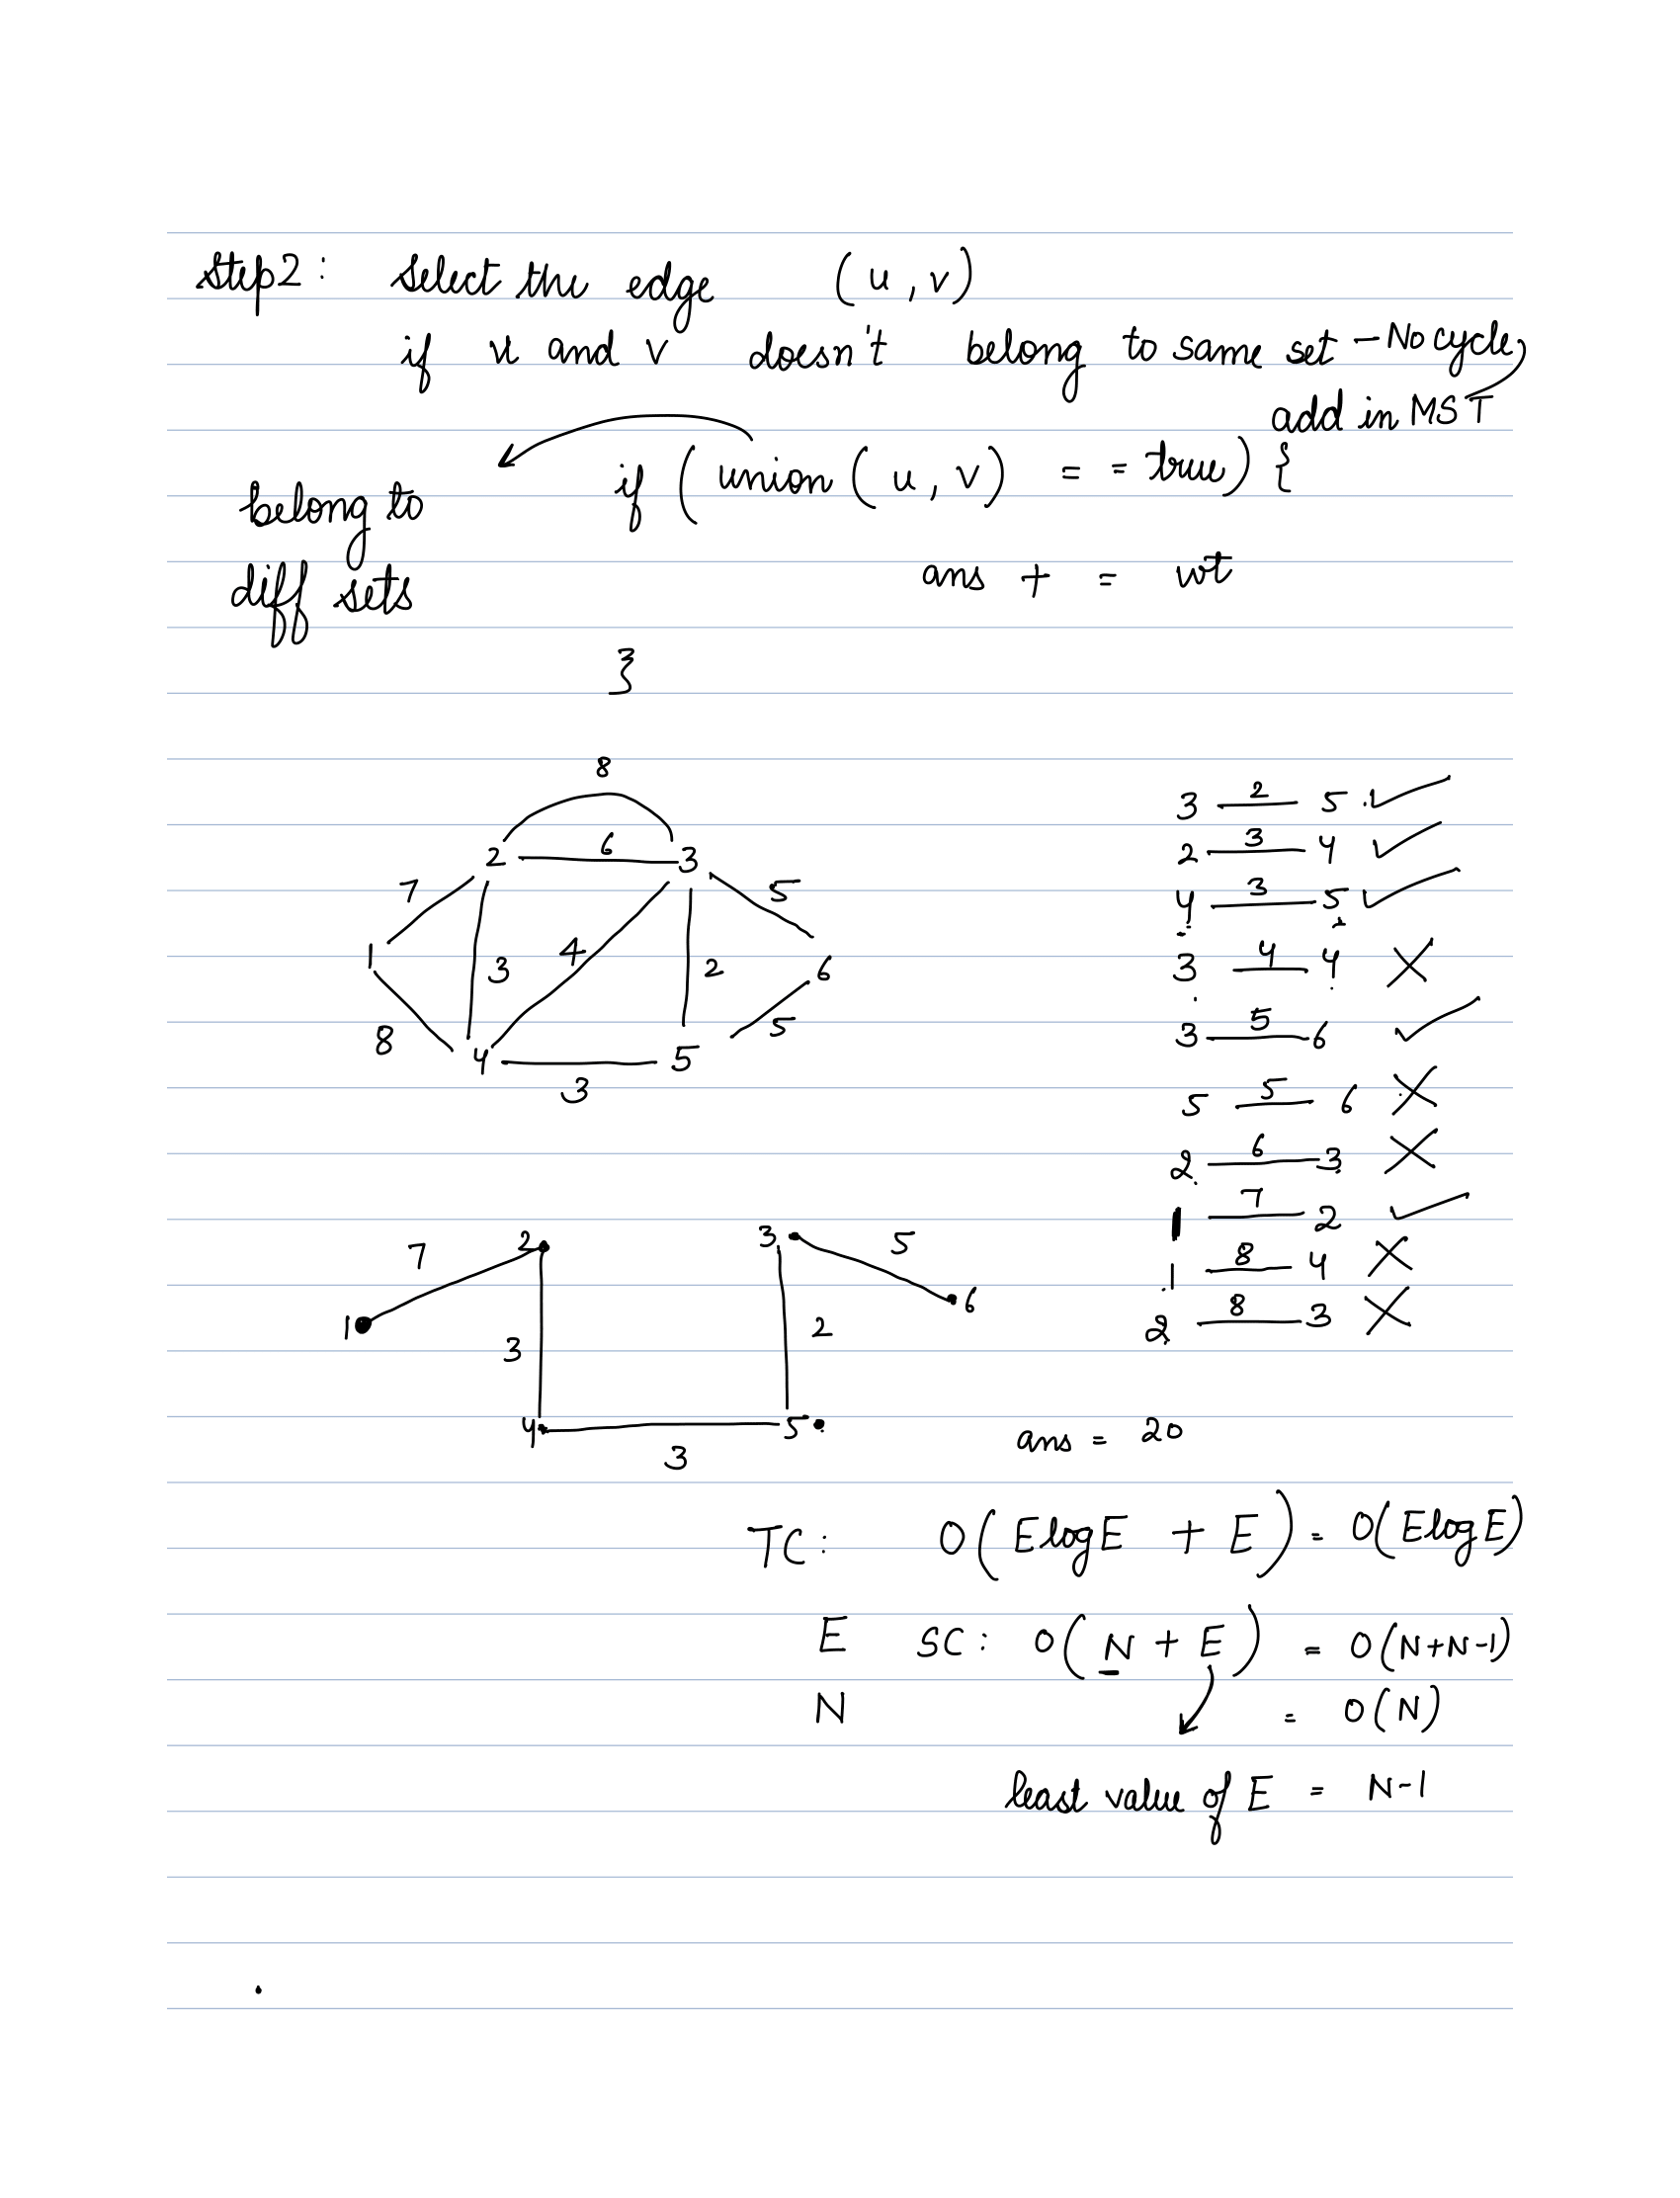 Step2: Select the edge (u, v)
if u and v doesn't belong to same set - No cycle,
add in MST
if (union (u, v) = = true) {
belong to
diff sets
ans + = wt
}
8
2 6 3
7 5
1 3 4 2 6
8 5
4 3 5
3 2 5 ✓
2 3 4 ✓
4 3 5 ✓
3 4 4 ✗
3 5 6 ✓
5 5 6 ✗
2 6 3 ✗
1 7 2 ✓
1 8 4 ✗
2 8 3 ✗
7 2 3 5
1 3 2 6
4 3 5
ans = 20
TC: O(ElogE + E) = O(ElogE)
E SC: O(N + E) = O(N+N-1)
N = O(N)
least value of E = N-1